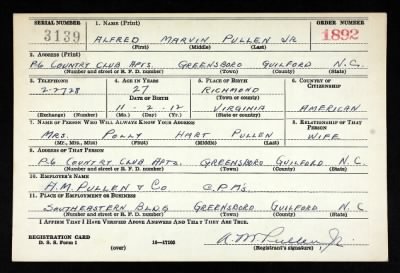 SERIAL NUMBER 1. NAME (Print) ORDER NUMBER
3139 ALFRED MARVIN PULLEN JR 1892
(First) (Middle) (Last)
2. ADDRESS (Print)
P6 COUNTRY CLUB APTS. GREENSBORO GUILFORD N.C.
(Number and street or R. F. D. number) (Town) (County) (State)
3. TELEPHONE 4. AGE IN YEARS 5. PLACE OF BIRTH 6. COUNTRY OF CITIZENSHIP
2-7728 27 RICHMOND
DATE OF BIRTH (Town or county)
11 - 2 - 12 VIRGINIA AMERICAN
(Exchange) (Number) (Mo.) (Day) (Yr.) (State or country)
7. NAME OF PERSON WHO WILL ALWAYS KNOW YOUR ADDRESS 8. RELATIONSHIP OF THAT PERSON
MRS. POLLY HART PULLEN WIFE
(Mr., Mrs., Miss) (First) (Middle) (Last)
9. ADDRESS OF THAT PERSON
P-6 COUNTRY CLUB APTS. GREENSBORO GUILFORD N.C.
(Number and street or R. F. D. number) (Town) (County) (State)
10. EMPLOYER'S NAME
A.M. PULLEN & CO C.P.A's.
11. PLACE OF EMPLOYMENT OR BUSINESS
SOUTHEASTERN BLDG GREENSBORO GUILFORD N.C.
(Number and street or R. F. D. number) (Town) (County) (State)
I AFFIRM THAT I HAVE VERIFIED ABOVE ANSWERS AND THAT THEY ARE TRUE.
REGISTRATION CARD
D. S. S. Form 1 (over) 16—17105 A M Pullen Jr.
(Registrant's signature)